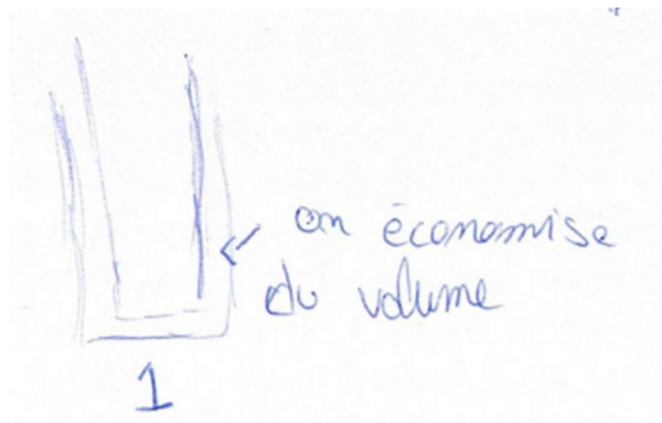 on économise
du volume
1